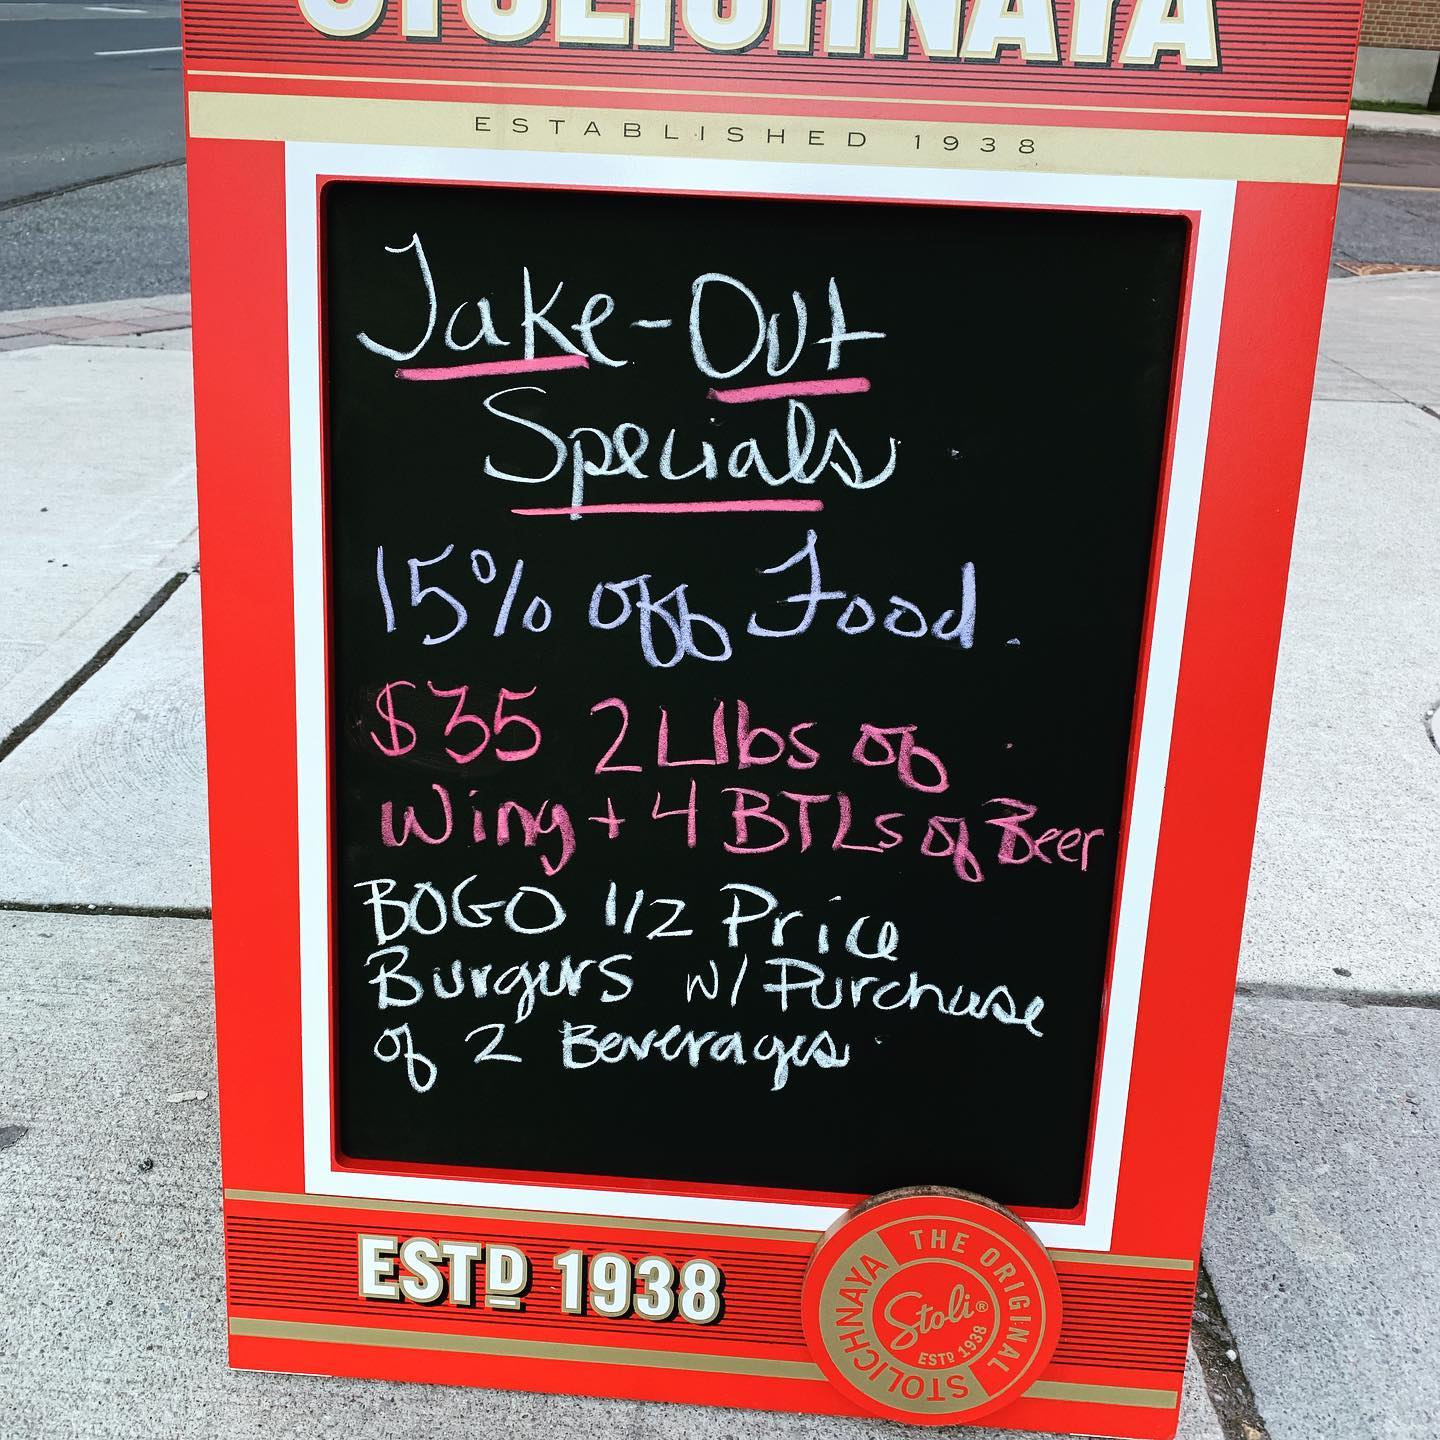 STOLICHNAYA
ESTABLISHED 1938
Take-Out
Specials
15% off Food.
$35 2 Llbs of
Wing + 4 BTLs of Beer
BOGO 1/2 Price
Burgers w/ Purchase
of 2 Beverages
ESTD 1938
THE ORIGINAL
STOLICHNAYA
Stoli®
ESTD 1938